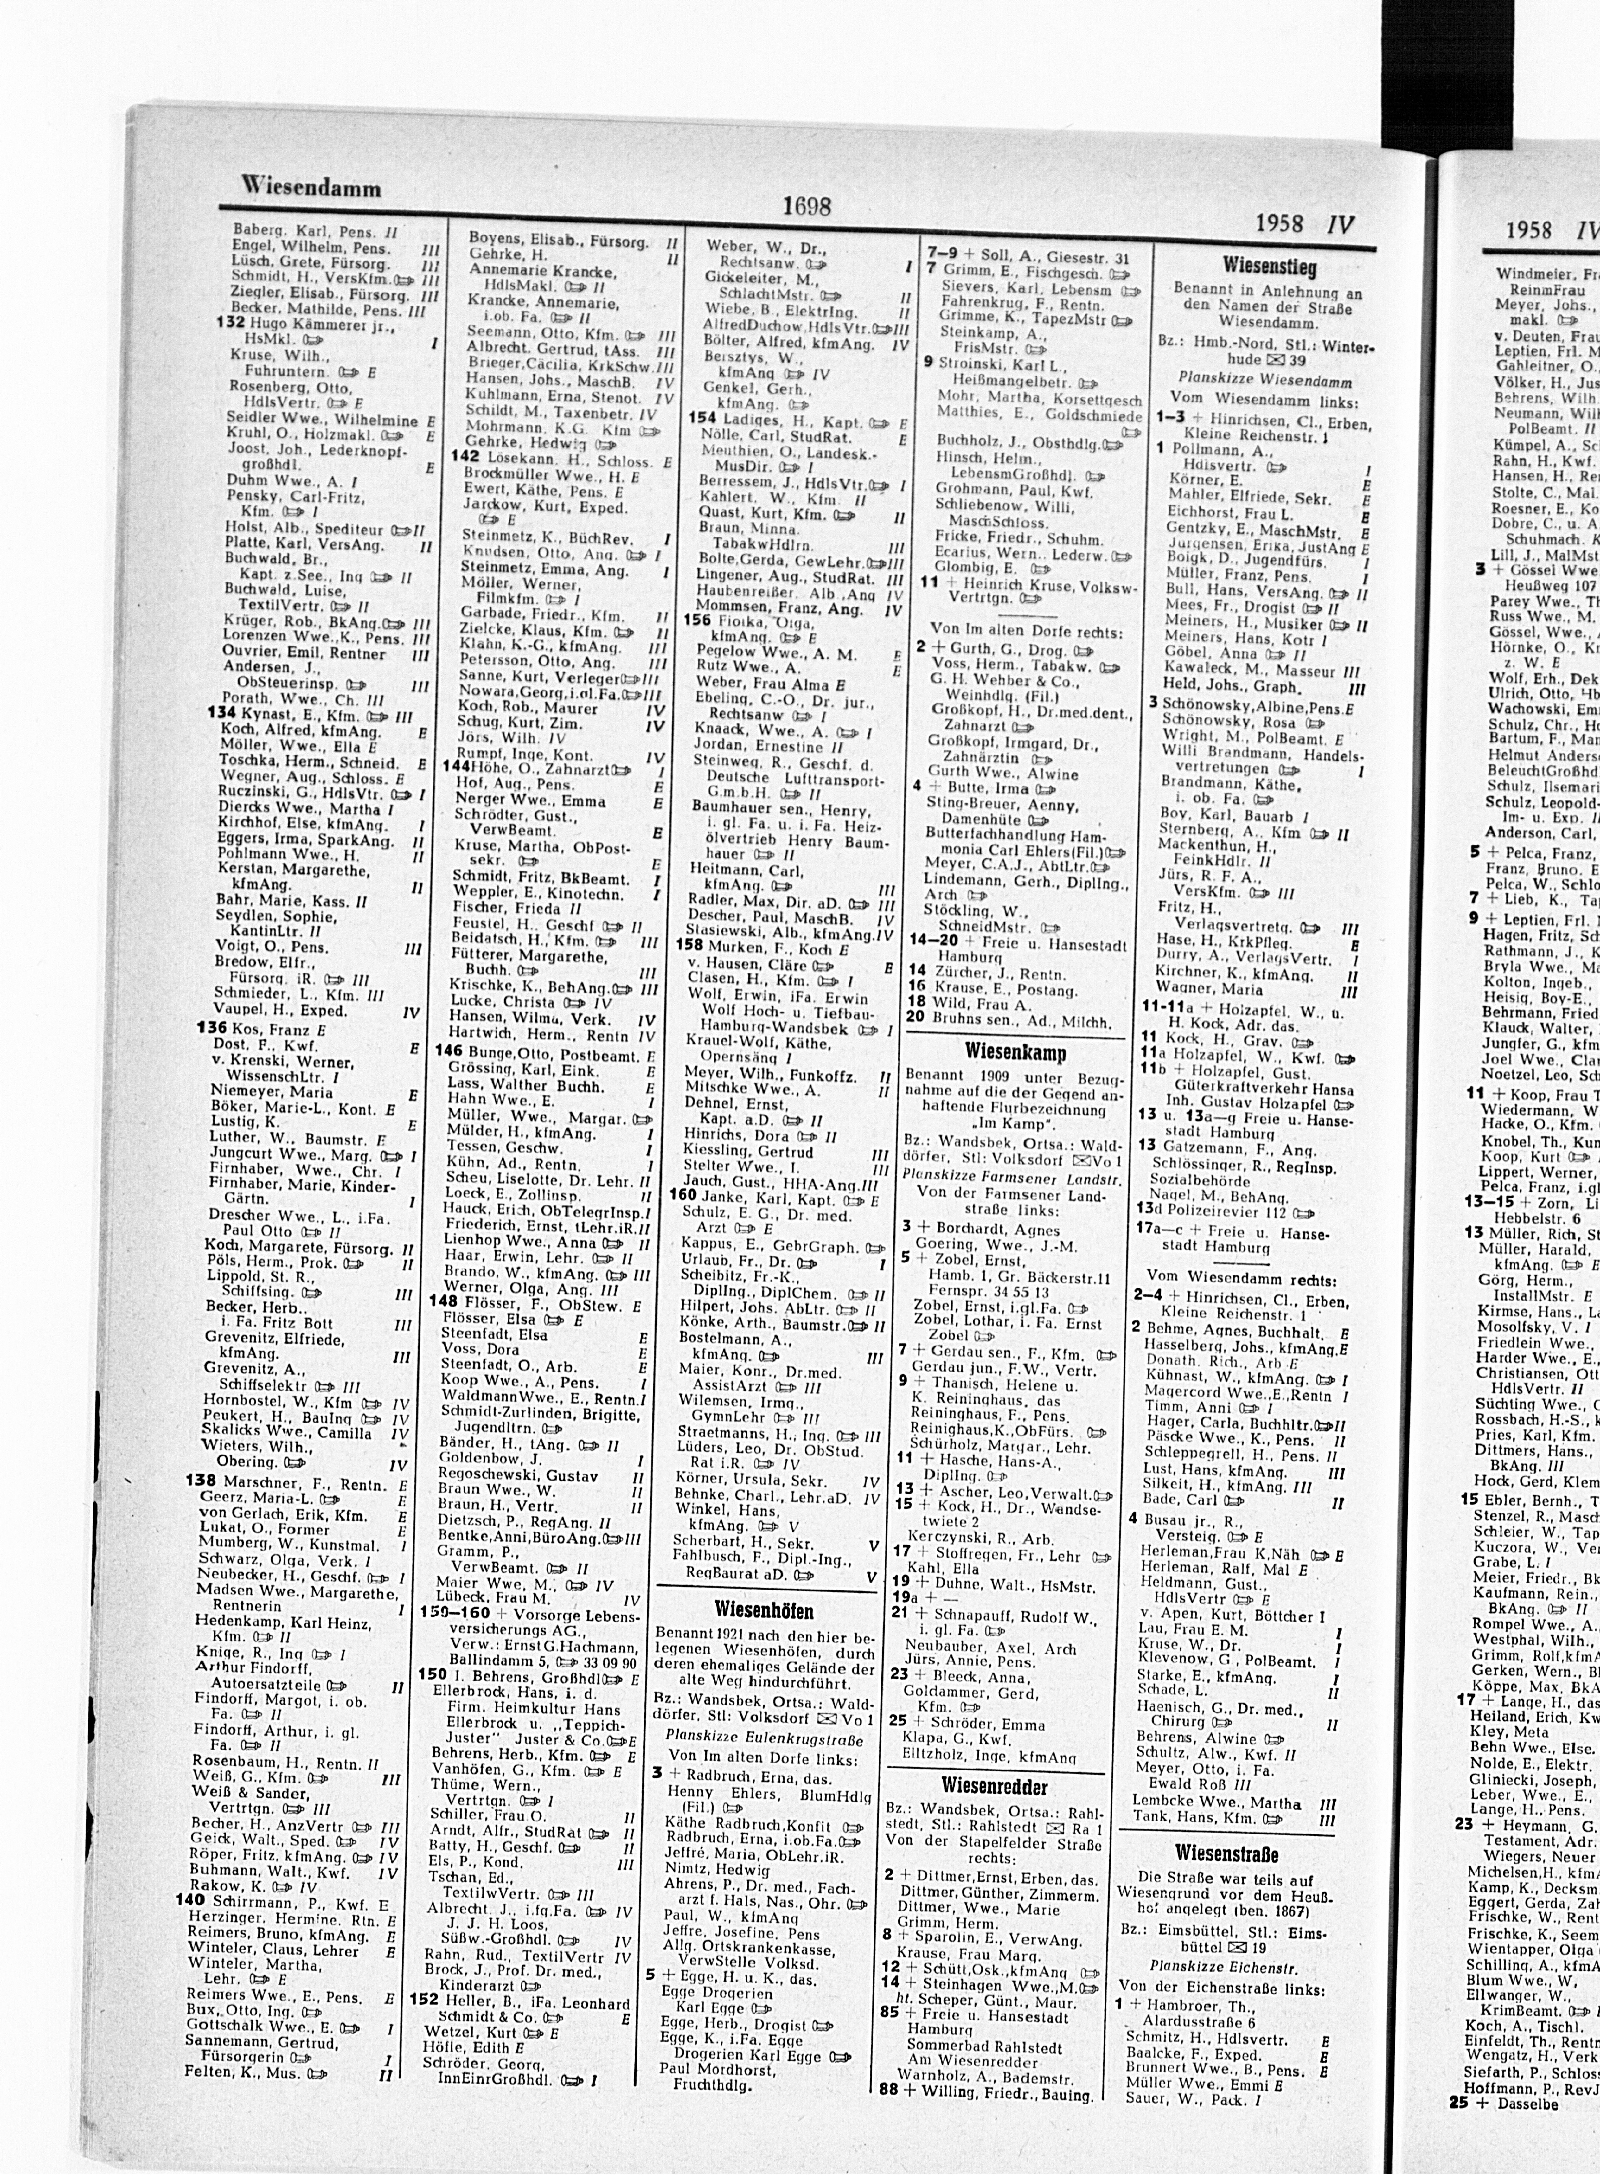 Wiesendamm
1698
1958 IV
Baberg, Karl, Pens. II
Engel, Wilhelm, Pens. III
Lüsch, Grete, Fürsorg. III
Schmidt, H., VersKfm. III
Ziegler, Elisab., Fürsorg. III
Becker, Mathilde, Pens. III
132 Hugo Kämmerer jr.,
HsMkl. I
Kruse, Wilh.,
Fuhruntern. E
Rosenberg, Otto,
HdlsVertr. E
Seidler Wwe., Wilhelmine E
Kruhl, O., Holzmakl. E
Joost, Joh., Lederknopf-
großhdl. E
Duhm Wwe., A. I
Pensky, Carl-Fritz,
Kfm. I
Holst, Alb., Spediteur II
Platte, Karl, VersAng. II
Buchwald, Br.,
Kapt. z.See., Ing II
Buchwald, Luise,
TextilVertr. II
Krüger, Rob., BkAng. III
Lorenzen Wwe.,K., Pens. III
Ouvrier, Emil, Rentner III
Andersen, J.,
ObSteuerinsp. III
Porath, Wwe., Ch. III
134 Kynast, E., Kfm. III
Koch, Alfred, kfmAng. E
Möller, Wwe., Ella E
Toschka, Herm., Schneid. E
Wegner, Aug., Schloss. E
Ruczinski, G., HdlsVtr. I
Diercks Wwe., Martha I
Kirchhof, Else, kfmAng. I
Eggers, Irma, SparkAng. II
Pohlmann Wwe., H. II
Kerstan, Margarethe,
kfmAng. II
Bahr, Marie, Kass. II
Seydlen, Sophie,
KantinLtr. II
Voigt, O., Pens. III
Bredow, Elfr.,
Fürsorg. iR. III
Schmieder, L., Kfm. III
Vaupel, H., Exped. IV
136 Kos, Franz E
Dost, F., Kwf. E
v. Krenski, Werner,
WissenschLtr. I
Niemeyer, Maria E
Böker, Marie-L., Kont. E
Lustig, K. E
Luther, W., Baumstr. E
Jungcurt Wwe., Marg. I
Firnhaber, Wwe., Chr. I
Firnhaber, Marie, Kinder-
Gärtn. I
Drescher Wwe., L., i.Fa.
Paul Otto II
Koch, Margarete, Fürsorg. II
Pöls, Herm., Prok. II
Lippold, St. R.,
Schiffsing. III
Becker, Herb.,
i. Fa. Fritz Bott III
Grevenitz, Elfriede,
kfmAng. III
Grevenitz, A.,
Schiffselektr III
Hornbostel, W., Kfm IV
Peukert, H., BauIng IV
Skalicks Wwe., Camilla IV
Wieters, Wilh.,
Obering. IV
138 Marschner, F., Rentn. E
Geerz, Maria-L. E
von Gerlach, Erik, Kfm. E
Lukat, O., Former E
Mumberg, W., Kunstmal. I
Schwarz, Olga, Verk. I
Neubecker, H., Geschf. I
Madsen Wwe., Margarethe,
Rentnerin I
Hedenkamp, Karl Heinz,
Kfm. II
Knige, R., Ing I
Arthur Findorff,
Autoersatzteile II
Findorff, Margot, i. ob.
Fa. II
Findorff, Arthur, i. gl.
Fa. II
Rosenbaum, H., Rentn. II
Weiß, G., Kfm. III
Weiß & Sander,
Vertrtgn. III
Becher, H., AnzVertr III
Geick, Walt., Sped. IV
Röper, Fritz, kfmAng. IV
Buhmann, Walt., Kwf. IV
Rakow, K. IV
140 Schirrmann, P., Kwf. E
Herzinger, Hermine, Rtn. E
Reimers, Bruno, kfmAng. E
Winteler, Claus, Lehrer E
Winteler, Martha,
Lehr. E
Reimers Wwe., E., Pens. E
Bux, Otto, Ing.
Gottschalk Wwe., E. I
Sannemann, Gertrud,
Fürsorgerin I
Felten, K., Mus. II
Boyens, Elisab., Fürsorg. II
Gehrke, H. II
Annemarie Krancke,
HdlsMakl. II
Krancke, Annemarie,
i.ob. Fa. II
Seemann, Otto, Kfm. III
Albrecht, Gertrud, tAss. III
Brieger,Cäcilia, KrkSchw. III
Hansen, Johs., MaschB. IV
Kuhlmann, Erna, Stenot. IV
Schildt, M., Taxenbetr. IV
Mohrmann, K.G. Kfm
Gehrke, Hedwig
142 Lösekann, H., Schloss. E
Brockmüller Wwe., H. E
Ewert, Käthe, Pens. E
Jarckow, Kurt, Exped.
E
Steinmetz, K., BüchRev. I
Knudsen, Otto, Ang. I
Steinmetz, Emma, Ang. I
Möller, Werner,
Filmkfm. I
Garbade, Friedr., Kfm. II
Zielcke, Klaus, Kfm. II
Klahn, K.-G., kfmAng. III
Petersson, Otto, Ang. III
Sanne, Kurt, Verleger III
Nowara,Georg,i.gl.Fa. III
Koch, Rob., Maurer IV
Schug, Kurt, Zim. IV
Jörs, Wilh. IV
Rumpf, Inge, Kont. IV
144 Höhe, O., Zahnarzt I
Hof, Aug., Pens. E
Nerger Wwe., Emma E
Schrödter, Gust.,
VerwBeamt. E
Kruse, Martha, ObPost-
sekr. E
Schmidt, Fritz, BkBeamt. I
Weppler, E., Kinotechn. I
Fischer, Frieda II
Feustel, H., Geschf II
Beidatsch, H., Kfm. III
Fütterer, Margarethe,
Buchh. III
Krischke, K., BehAng. III
Lucke, Christa IV
Hansen, Wilma, Verk. IV
Hartwich, Herm., Rentn IV
146 Bunge,Otto, Postbeamt. E
Grössing, Karl, Eink. E
Lass, Walther Buchh. E
Hahn Wwe., E. I
Müller, Wwe., Margar.
Mülder, H., kfmAng. I
Tessen, Geschw. I
Kühn, Ad., Rentn. I
Scheu, Liselotte, Dr. Lehr. II
Loeck, E., Zollinsp. II
Hauck, Erich, ObTelegrInsp. I
Friederich, Ernst, tLehr.iR. II
Lienhop Wwe., Anna II
Haar, Erwin, Lehr. II
Brando, W., kfmAng. III
Werner, Olga, Ang. III
148 Flösser, F., ObStew. E
Flösser, Elsa E
Steenfadt, Elsa E
Voss, Dora E
Steenfadt, O., Arb. E
Koop Wwe., A., Pens. I
WaldmannWwe., E., Rentn. I
Schmidt-Zurlinden, Brigitte,
Jugendltrn.
Bänder, H., tAng. II
Goldenbow, J. I
Regoschewski, Gustav II
Braun Wwe., W. II
Braun, H., Vertr. II
Dietzsch, P., RegAng. II
Bentke,Anni,BüroAng. III
Gramm, P.,
VerwBeamt. II
Maier Wwe, M., IV
Lübeck, Frau M. IV
150—160 + Vorsorge Lebens-
versicherungs AG.,
Verw.: ErnstG.Hachmann,
Ballindamm 5, 33 09 90
150 I. Behrens, Großhdl E
Ellerbrock, Hans, i. d.
Firm. Heimkultur Hans
Ellerbrock u. „Teppich-
Juster" Juster & Co. E
Behrens, Herb., Kfm. E
Vanhöfen, G., Kfm. E
Thüme, Wern.,
Vertrtgn. I
Schiller, Frau O. II
Arndt, Alfr., StudRat II
Batty, H., Geschf. II
Els, P., Kond. III
Tschan, Ed.,
TextilwVertr. III
Albrecht, J., i.fg.Fa. IV
J. J. H. Loos,
Süßw.-Großhdl. IV
Rahn, Rud., TextilVertr IV
Brock, J., Prof. Dr. med.,
Kinderarzt
152 Heller, B., iFa. Leonhard
Schmidt & Co. E
Wetzel, Kurt E
Höfle, Edith E
Schröder, Georg,
InnEinrGroßhdl. I
Weber, W., Dr.,
Rechtsanw. I
Gickeleiter, M.,
SchlachtMstr. II
Wiebe, B., ElektrIng. II
AlfredDuchow,HdlsVtr. III
Bölter, Alfred, kfmAng. IV
Bersztys, W.,
kfmAng IV
Genkel, Gerh.,
kfmAng.
154 Ladiges, H., Kapt. E
Nölle, Carl, StudRat. E
Meuthien, O., Landesk.-
MusDir. I
Berressem, J., HdlsVtr. I
Kahlert, W., Kfm. II
Quast, Kurt, Kfm. II
Braun, Minna,
TabakwHdlrn. III
Bolte,Gerda, GewLehr. III
Lingener, Aug., StudRat. III
Haubenreißer, Alb.,Ang IV
Mommsen, Franz, Ang. IV
156 Fiotka, Olga,
kfmAng. E
Pegelow Wwe., A. M. E
Rutz Wwe., A. E
Weber, Frau Alma E
Ebeling, C.-O., Dr. jur.,
Rechtsanw I
Knaack, Wwe., A. I
Jordan, Ernestine II
Steinweg, R., Geschf. d.
Deutsche Lufttransport-
G.m.b.H. II
Baumhauer sen., Henry,
i. gl. Fa. u. i. Fa. Heiz-
ölvertrieb Henry Baum-
hauer II
Heitmann, Carl,
kfmAng. III
Radler, Max, Dir. aD. III
Descher, Paul, MaschB. IV
Stasiewski, Alb., kfmAng. IV
158 Murken, F., Koch E
v. Hausen, Cläre E
Clasen, H., Kfm. I
Wolf, Erwin, iFa. Erwin
Wolf Hoch- u. Tiefbau-
Hamburg-Wandsbek I
Krauel-Wolf, Käthe,
Opernsäng I
Meyer, Wilh., Funkoffz. II
Mitschke Wwe., A. II
Dehnel, Ernst,
Kapt. a.D. II
Hinrichs, Dora II
Kiessling, Gertrud III
Stelter Wwe., I. III
Jauch, Gust., HHA-Ang. III
160 Janke, Karl, Kapt. E
Schulz, E. G., Dr. med.
Arzt E
Kappus, E., GebrGraph.
Urlaub, Fr., Dr. I
Scheibitz, Fr.-K.,
DiplIng., DiplChem. II
Hilpert, Johs. AbLtr. II
Könke, Arth., Baumstr. II
Bostelmann, A.,
kfmAng. III
Maier, Konr., Dr.med.
AssistArzt III
Wilemsen, Irmg.,
GymnLehr III
Straetmanns, H., Ing. III
Lüders, Leo, Dr. ObStud.
Rat i.R. IV
Körner, Ursula, Sekr. IV
Behnke, Charl., Lehr.aD. IV
Winkel, Hans,
kfmAng. V
Scherbart, H., Sekr. V
Fahlbusch, F., Dipl.-Ing.,
RegBaurat aD. V
Wiesenhöfen
Benannt 1921 nach den hier be-
legenen Wiesenhöfen, durch
deren ehemaliges Gelände der
alte Weg hindurchführt.
Bz.: Wandsbek, Ortsa.: Wald-
dörfer, Stl: Volksdorf Vo 1
Planskizze Eulenkrugstraße
Von Im alten Dorfe links:
3 + Radbruch, Erna, das.
Henny Ehlers, BlumHdlg
(Fil.)
Käthe Radbruch,Konfit
Radbruch, Erna, i.ob.Fa.
Jeffré, Maria, ObLehr.iR.
Nimtz, Hedwig
Ahrens, P., Dr. med., Fach-
arzt f. Hals, Nas., Ohr.
Paul, W., kfmAng
Jeffre, Josefine, Pens
Allg. Ortskrankenkasse,
VerwStelle Volksd.
5 + Egge, H. u. K., das.
Egge Drogerien
Karl Egge
Egge, Herb., Drogist
Egge, K., i.Fa. Egge
Drogerien Karl Egge
Paul Mordhorst,
Fruchthdlg.
7—9 + Soll, A., Giesestr. 31
7 Grimm, E., Fischgesch.
Sievers, Karl, Lebensm
Fahrenkrug, F., Rentn.
Grimme, K., TapezMstr
Steinkamp, A.,
FrisMstr.
9 Stroinski, Karl L.,
Heißmangelbetr.
Mohr, Martha, Korsettgesch
Matthies, E., Goldschmiede
Buchholz, J., Obsthdlg.
Hinsch, Helm.,
LebensmGroßhdl.
Grohmann, Paul, Kwf.
Schliebenow, Willi,
MaschSchloss.
Fricke, Friedr., Schuhm.
Ecarius, Wern., Lederw.
Glombig, E.
11 + Heinrich Kruse, Volksw-
Vertrtgn.
Von Im alten Dorfe rechts:
2 + Gurth, G., Drog.
Voss, Herm., Tabakw.
G. H. Wehber & Co.,
Weinhdlg. (Fil.)
Großkopf, H., Dr.med.dent.,
Zahnarzt
Großkopf, Irmgard, Dr.,
Zahnärztin
Gurth Wwe., Alwine
4 + Butte, Irma
Sting-Breuer, Aenny,
Damenhüte
Butterfachhandlung Ham-
monia Carl Ehlers(Fil.)
Meyer, C.A.J., AbtLtr.
Lindemann, Gerh., DiplIng.,
Arch
Stöckling, W.,
SchneidMstr.
14—20 + Freie u. Hansestadt
Hamburg
14 Zürcher, J., Rentn.
16 Krause, E., Postang.
18 Wild, Frau A.
20 Bruhns sen., Ad., Milchh.
Wiesenkamp
Benannt 1909 unter Bezug-
nahme auf die der Gegend an-
haftende Flurbezeichnung
„Im Kamp".
Bz.: Wandsbek, Ortsa.: Wald-
dörfer, Stl: Volksdorf Vo 1
Planskizze Farmsener Landstr.
Von der Farmsener Land-
straße links:
3 + Borchardt, Agnes
Goering, Wwe., J.-M.
5 + Zobel, Ernst,
Hamb. 1, Gr. Bäckerstr.11
Fernspr. 34 55 13
Zobel, Ernst, i.gl.Fa.
Zobel, Lothar, i. Fa. Ernst
Zobel
7 + Gerdau sen., F., Kfm.
Gerdau jun., F.W., Vertr.
9 + Thanisch, Helene u.
K. Reininghaus, das
Reininghaus, F., Pens.
Reinighaus,K.,ObFürs.
Schürholz, Margar., Lehr.
11 + Hasche, Hans-A.,
DiplIng.
13 + Ascher, Leo,Verwalt.
15 + Kock, H., Dr., Wandse-
twiete 2
Kerczynski, R., Arb.
17 + Stoffregen, Fr., Lehr
Kahl, Ella
19 + Duhne, Walt., HsMstr.
19a + —
21 + Schnapauff, Rudolf W.,
i. gl. Fa.
Neubauber, Axel, Arch
Jürs, Annie, Pens.
23 + Bleeck, Anna,
Goldammer, Gerd,
Kfm.
25 + Schröder, Emma
Klapa, G., Kwf.
Eiltzholz, Inge, kfmAng
Wiesenredder
Bz.: Wandsbek, Ortsa.: Rahl-
stedt, Stl.: Rahlstedt Ra 1
Von der Stapelfelder Straße
rechts:
2 + Dittmer,Ernst, Erben, das.
Dittmer,Günther, Zimmerm.
Dittmer, Wwe., Marie
Grimm, Herm.
8 + Sparolin, E., VerwAng.
Krause, Frau Marg.
12 + Schütt,Osk.,kfmAng
14 + Steinhagen Wwe.,M.
hf. Scheper, Günt., Maur.
85 + Freie u. Hansestadt
Hamburg
Sommerbad Rahlstedt
Am Wiesenredder
Warnholz, A., Bademstr.
88 + Willing, Friedr., Bauing.
Wiesenstieg
Benannt in Anlehnung an
den Namen der Straße
Wiesendamm.
Bz.: Hmb.-Nord, Stl.: Winter-
hude 39
Planskizze Wiesendamm
Vom Wiesendamm links:
1—3 + Hinrichsen, Cl., Erben,
Kleine Reichenstr. 1
1 Pollmann, A.,
Hdlsvertr. I
Körner, E. E
Mahler, Elfriede, Sekr. E
Eichhorst, Frau L. E
Gentzky, E., MaschMstr. E
Jürgensen, Erika, JustAng E
Boigk, D., Jugendfürs. I
Müller, Franz, Pens. I
Bull, Hans, VersAng. II
Mees, Fr., Drogist II
Meiners, H., Musiker II
Meiners, Hans, Kotr I
Göbel, Anna II
Kawaleck, M., Masseur III
Held, Johs., Graph. III
3 Schönowsky,Albine,Pens.E
Schönowsky, Rosa
Wright, M., PolBeamt. E
Willi Brandmann, Handels-
vertretungen I
Brandmann, Käthe,
i. ob. Fa.
Boy, Karl, Bauarb I
Sternberg, A., Kfm II
Mackenthun, H.,
FeinkHdlr. II
Jürs, R. F. A.,
VersKfm. III
Fritz, H.,
Verlagsvertretg. III
Hase, H., KrkPfleg. E
Durry, A., VerlagsVertr. I
Kirchner, K., kfmAng. II
Wagner, Maria III
11-11a + Holzapfel, W., u.
H. Kock, Adr. das.
11 Kock, H., Grav.
11a Holzapfel, W., Kwf.
11b + Holzapfel, Gust.
Güterkraftverkehr Hansa
Inh. Gustav Holzapfel
13 u. 13a—g Freie u. Hanse-
stadt Hamburg
13 Gatzemann, F., Ang.
Schlössinger, R., RegInsp.
Sozialbehörde
Nagel, M., BehAng.
13d Polizeirevier 112
17a—c + Freie u. Hanse-
stadt Hamburg
Vom Wiesendamm rechts:
2—4 + Hinrichsen, Cl., Erben,
Kleine Reichenstr. 1
2 Behme, Agnes, Buchhalt. E
Hasselberg, Johs., kfmAng.E
Donath, Rich., Arb E
Kühnast, W., kfmAng. I
Magercord Wwe.,E.,Rentn I
Timm, Anni I
Hager, Carla, Buchhltr. II
Päscke Wwe., K., Pens. II
Schleppegrell, H., Pens. II
Lust, Hans, kfmAng. III
Silkeit, H., kfmAng. III
Bade, Carl II
4 Busau jr., R.,
Versteig. E
Herleman,Frau K,Näh E
Herleman, Ralf, Mal E
Heldmann, Gust.,
HdlsVertr E
v. Apen, Kurt, Böttcher I
Lau, Frau E. M. I
Kruse, W., Dr. I
Klevenow, G., PolBeamt. I
Starke, E., kfmAng. I
Schade, L. II
Haenisch, G., Dr. med.,
Chirurg II
Behrens, Alwine
Schultz, Alw., Kwf. II
Meyer, Otto, i. Fa.
Ewald Roß III
Lembcke Wwe., Martha III
Tank, Hans, Kfm. III
Wiesenstraße
Die Straße war teils auf
Wiesengrund vor dem Heuß-
hof angelegt (ben. 1867)
Bz.: Eimsbüttel, Stl.: Eims-
büttel 19
Planskizze Eichenstr.
Von der Eichenstraße links:
1 + Hambroer, Th.,
Alardusstraße 6
Schmitz, H., Hdlsvertr. E
Baalcke, F., Exped. E
Brunnert Wwe., B., Pens. E
Müller Wwe., Emmi E
Sauer, W., Pack. I
1958 IV
Windmeier, Fr
ReinmFrau
Meyer, Johs.,
makl.
v. Deuten, Frau
Leptien, Frl. M
Gahleitner, O.,
Völker, H., Jus
Behrens, Wilh.
Neumann, Wil
PolBeamt. II
Kümpel, A., Sc
Rahn, H., Kwf.
Hansen, H., Re
Stolte, C., Mal.
Roesner, E., Ko
Dobre, C., u. A.
Schuhmach. K
Lill, J., MalMst
3 + Gössel Wwe
Heußweg 107
Parey Wwe., Th
Russ Wwe., M.
Gössel, Wwe.,
Hörnke, O., Kr
z. W. E
Wolf, Erh., Dek
Ulrich, Otto, Hb
Wachowski, Em
Schulz, Chr., Ho
Bartum, F., Man
Helmut Anders
BeleuchtGroßhd
Schulz, Ilsemari
Schulz, Leopold-
Im- u. Exp. II
Anderson, Carl,
5 + Pelca, Franz,
Franz, Bruno, E
Pelca, W., Schlo
7 + Lieb, K., Ta
9 + Leptien, Frl. M
Hagen, Fritz, Sc
Rathmann, J., K
Bryla Wwe., Ma
Kolton, Ingeb.,
Heisig, Boy-E.,
Behrmann, Fried
Klauck, Walter,
Jungfer, G., kfm
Joel Wwe., Cla
Noetzel, Leo, Sch
11 + Koop, Frau T
Wiedermann, W
Hacke, O., Kfm.
Knobel, Th., Kun
Koop, Kurt
Lippert, Werner,
Pelca, Franz, i.gl
13—15 + Zorn, Li
Hebbelstr. 6
13 Müller, Rich, St
Müller, Harald,
kfmAng. E
Görg, Herm.,
InstallMstr. E
Kirmse, Hans., La
Mosolfsky, V. I
Friedlein Wwe.,
Harder Wwe., E.,
Christiansen, Ott
HdlsVertr. II
Süchting Wwe., C
Rossbach, H.-S., k
Pries, Karl, Kfm.
Dittmers, Hans.,
BkAng. III
Hock, Gerd, Klem
15 Ebler, Bernh., T
Stenzel, R., Masch
Schleier, W., Tap
Kuczora, W., Ver
Grabe, L. I
Meier, Friedr., Bk
Kaufmann, Rein.,
BkAng. II
Rompel Wwe., A.,
Westphal, Wilh.,
Grimm, Rolf,kfmA
Gerken, Wern., Bl
Köppe, Max, BkA
17 + Lange, H., das
Heiland, Erich, Kw
Kley, Meta
Behn Wwe., Else,
Nolde, E., Elektr.
Gliniecki, Joseph,
Leber, Wwe., E.,
Lange, H., Pens.
23 + Heymann, G.
Testament, Adr.
Wiegers, Neuer
Michelsen,H., kfmA
Kamp, K., Decksm.
Eggert, Gerda, Zah
Frischke, W., Rent
Frischke, K., Seem
Wientapper, Olga
Schilling, A., kfmA
Blum Wwe., W.
Ellwanger, W.,
KrimBeamt.
Koch, A., Tischl.
Einfeldt, Th., Rentn
Wengatz, H., Verk
Siefarth, P., Schlos
Hoffmann, P., RevJ
25 + Dasselbe